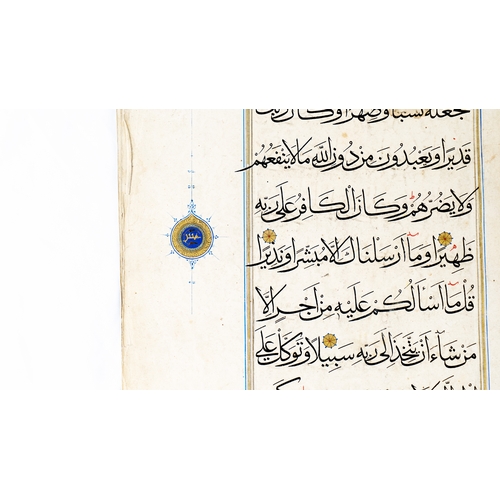 جعله نسبا وصهرا وكان ربك
قديرا ويعبدون من دون الله ما لا ينفعهم
ولا يضرهم وكان الكافر على ربه
ظهيرا وما أرسلناك الا مبشرا ونذيرا
عشر
قل ما أسالكم عليه من اجر الا
من شاء أن يتخذ الى ربه سبيلا وتوكل على